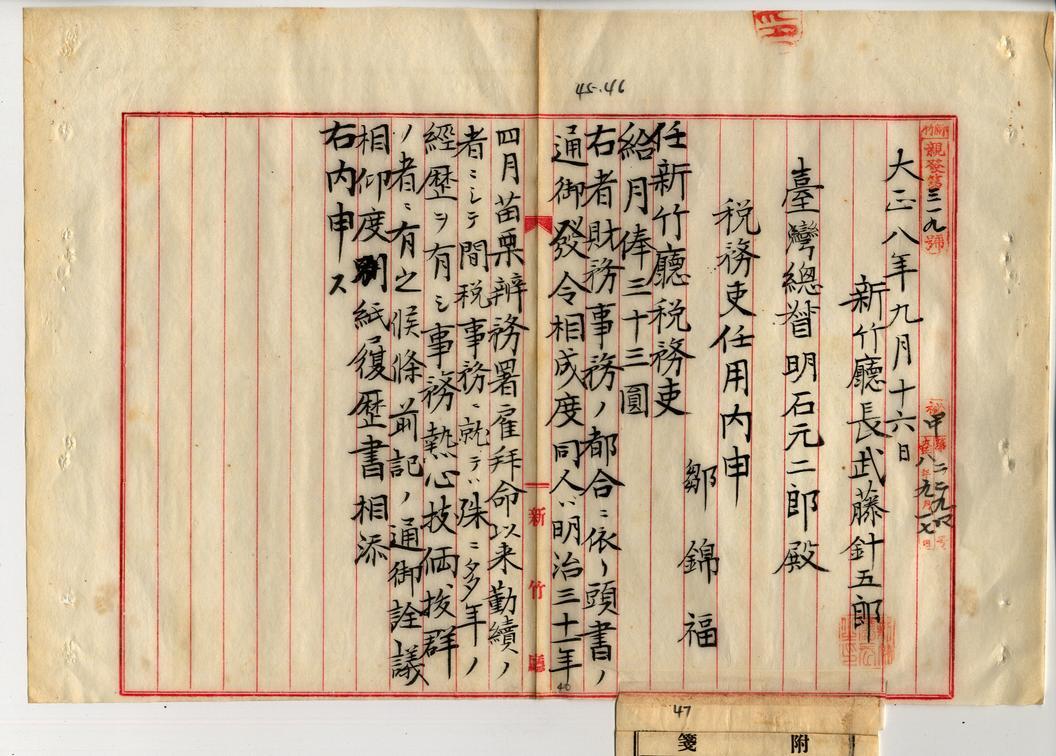 45.46
新竹
親發第三一九號
大正八年九月十六日
新竹廳長武藤針五郎
臺灣總督明石元二郎殿
税務吏任用内申
鄒錦福
任新竹廳税務吏
給月俸三十三圓
右者財務事務ノ都合ニ依リ頭書ノ
通御發令相成度同人ハ明治三十一年
四月苗栗辨務署雇拜命以来勤續ノ
者ニシテ間税事務ニ就テハ殊ニ多年ノ
經歴ヲ有シ事務熱心技倆拔群
ノ者ニ有之候條前記ノ通御詮議
相仰度別紙履歴書相添
右内申ス
新竹廳
46
47
附箋